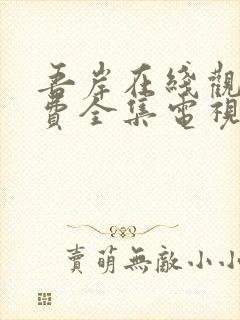 吾岸在綫觀
費全集電視
賣萌無敵小小